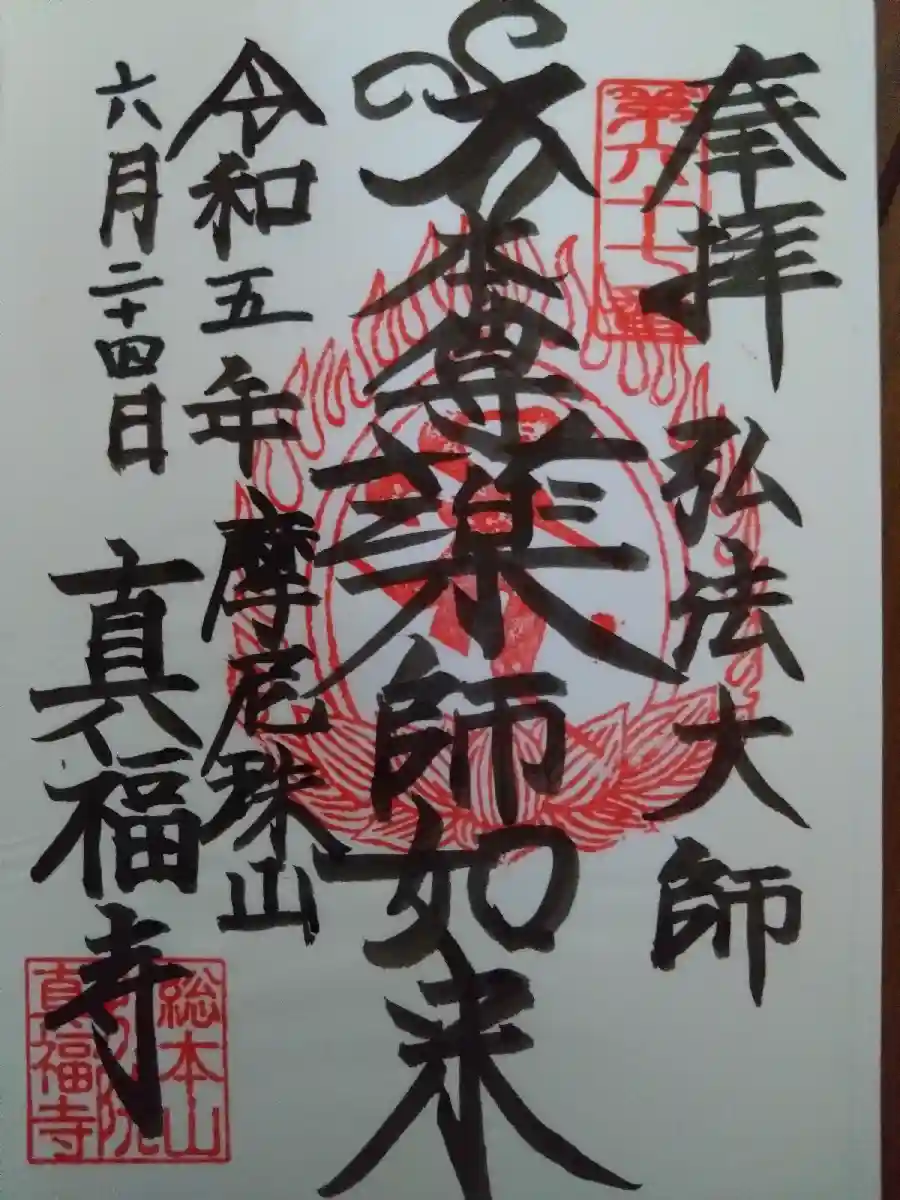 奉拝
弘法大師
第六十七番
本尊薬師如来
令和五年
六月二十四日
摩尼珠山
真福寺
総本山
別院
真福寺